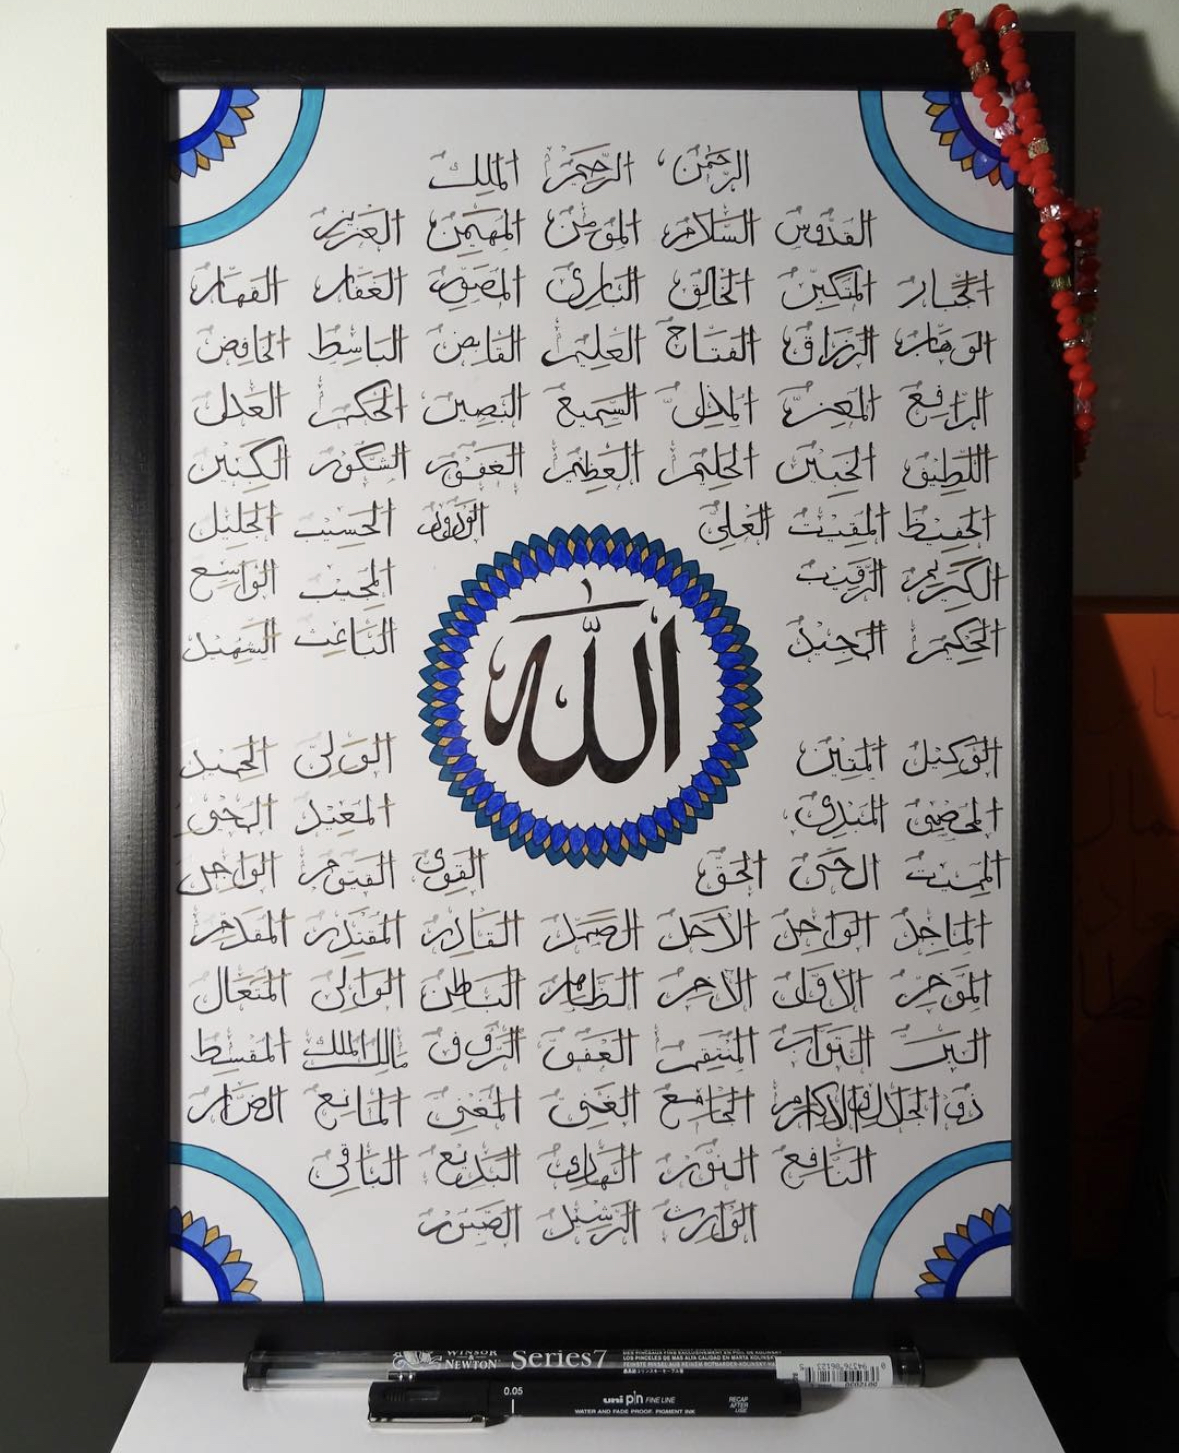 الرحمن الرحيم الملك
القدوس السلام المؤمن المهيمن العزيز
الجبار المتكبر الخالق البارئ المصور الغفار القهار
الوهاب الرزاق الفتاح العليم القابض الباسط الخافض
الرافع المعز المذل السميع البصير الحكم العدل
اللطيف الخبير الحليم العظيم الغفور الشكور الكبير
الحفيظ المقيت العلي الحسيب الجليل
الكريم الرقيب المجيب الواسع
الحكيم المجيد الباعث الشهيد
الله
الوكيل المتين الولي الحميد
المحصي المبدئ المعيد
المميت الحي الحق القوي القيوم الواجد
الماجد الواحد الاحد الصمد القادر المقتدر المقدم
المؤخر الاول الاخر الظاهر الباطن الوالي المتعال
البر التواب المنتقم العفو الرؤوف مالك الملك المقسط
ذو الجلال والاكرام الجامع الغني المغني المانع الضار
النافع النور الهادي البديع الباقي
الوارث الرشيد الصبور
WINSOR & NEWTON Series 7
0.05 uni pin FINE LINE
WATER AND FADE PROOF, PIGMENT INK
RECAP AFTER USE